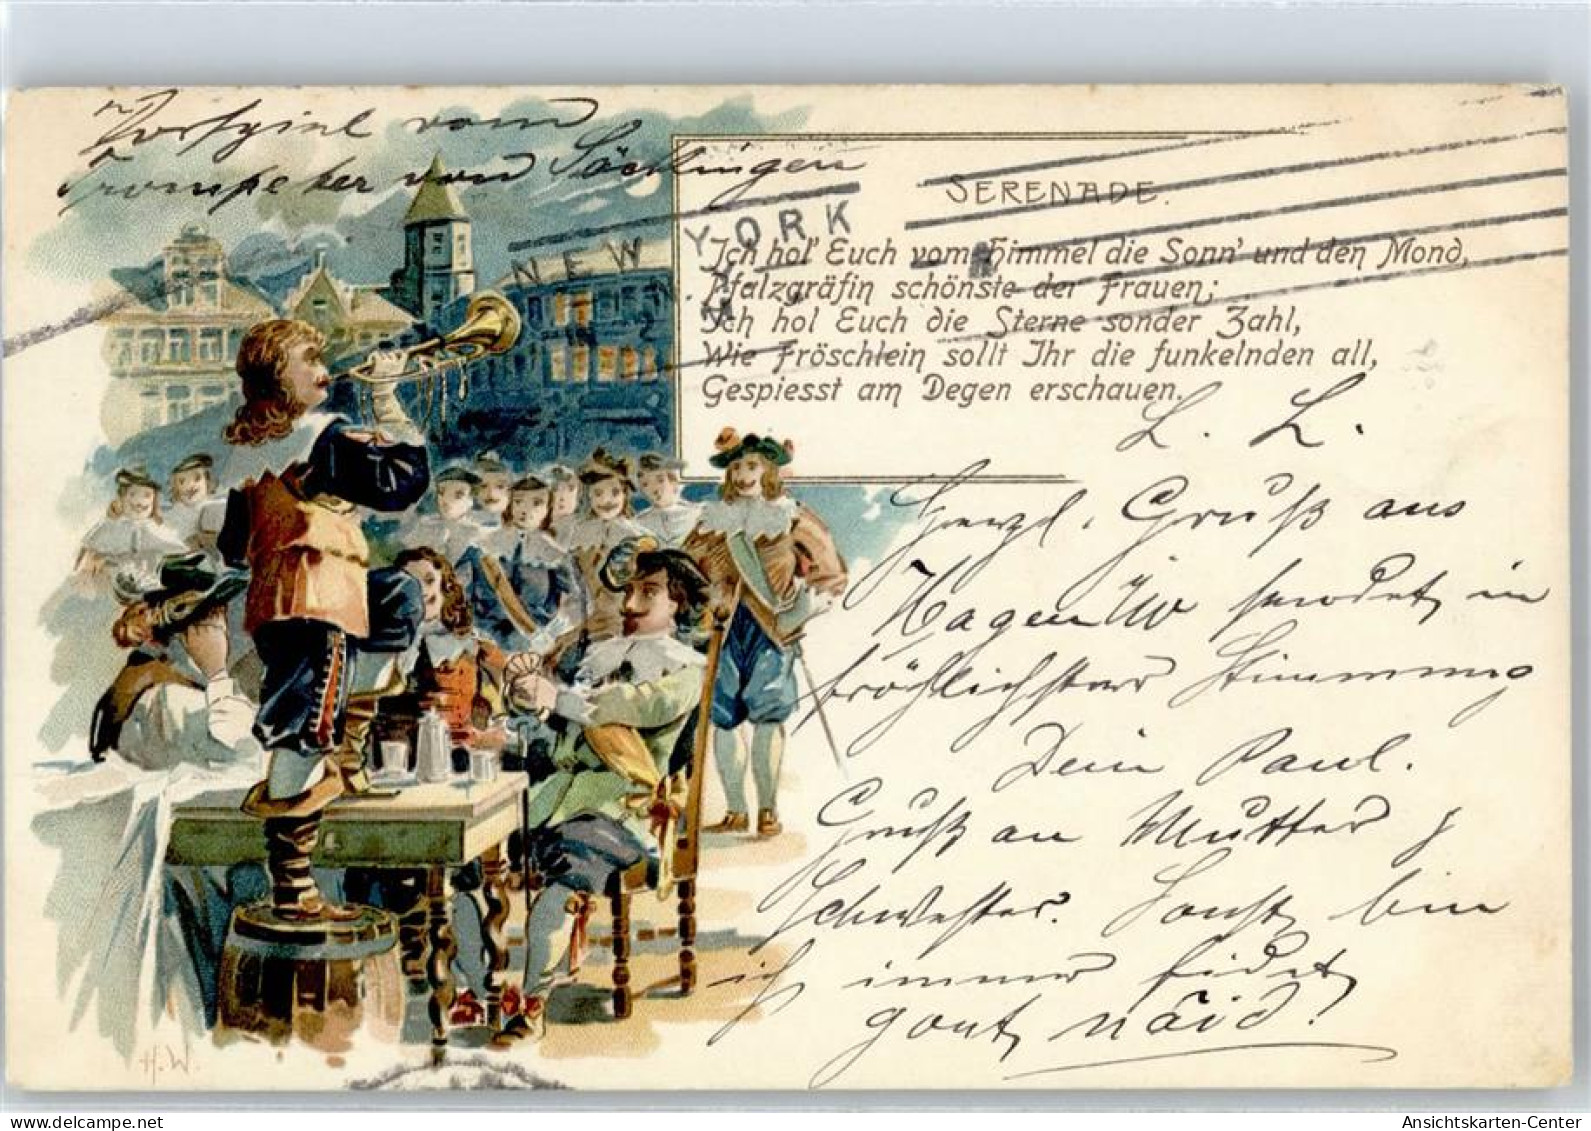 Vorspiel vom
Trompeter von Säckingen
SERENADE.
NEW YORK
N.Y.
Ich hol' Euch vom Himmel die Sonn' und den Mond,
Pfalzgräfin schönste der Frauen;
Ich hol Euch die Sterne sonder Zahl,
Wie Fröschlein sollt Ihr die funkelnden all,
Gespiesst am Degen erschauen.
L. L.
Herzl. Gruß aus
Hagen i/W sendet in
fröhlichster Stimmung
Dein Paul.
Gruß an Mutter &
Schwester. Sonst bin
ich immer fidel,
H.W.
Ansichtskarten-Center